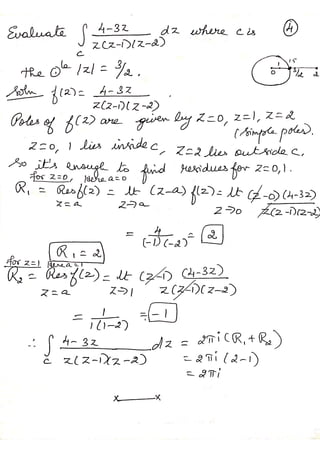 Evaluate ∫ 4-3z / z(z-1)(z-2) dz where c is
c
4
the Ole |z| = 3/2.
1 1.5
0 3/2 2
Soln f(z) = 4-3z / z(z-1)(z-2)
Poles of f(z) are given by z=0, z=1, z=2
(simple poles).
z=0, 1 lies inside c, z=2 lies outside c.
So it's enough to find residues for z=0,1.
for z=0, Here a=0
R1 = Res f(z) = lt (z-a) f(z) = lt (z-0)(4-3z) / z(z-1)(z-2)
z=a z→a z→0
= 4 / (-1)(-2) = 2
R1 = 2
for z=1 Here a=1
R2 = Res f(z) = lt (z-1) (4-3z) / z(z-1)(z-2)
z=a z→1
= 1 / 1(1-2) = -1
∴ ∫ 4-3z / z(z-1)(z-2) dz = 2πi(R1+R2)
c
= 2πi(2-1)
= 2πi
x———x